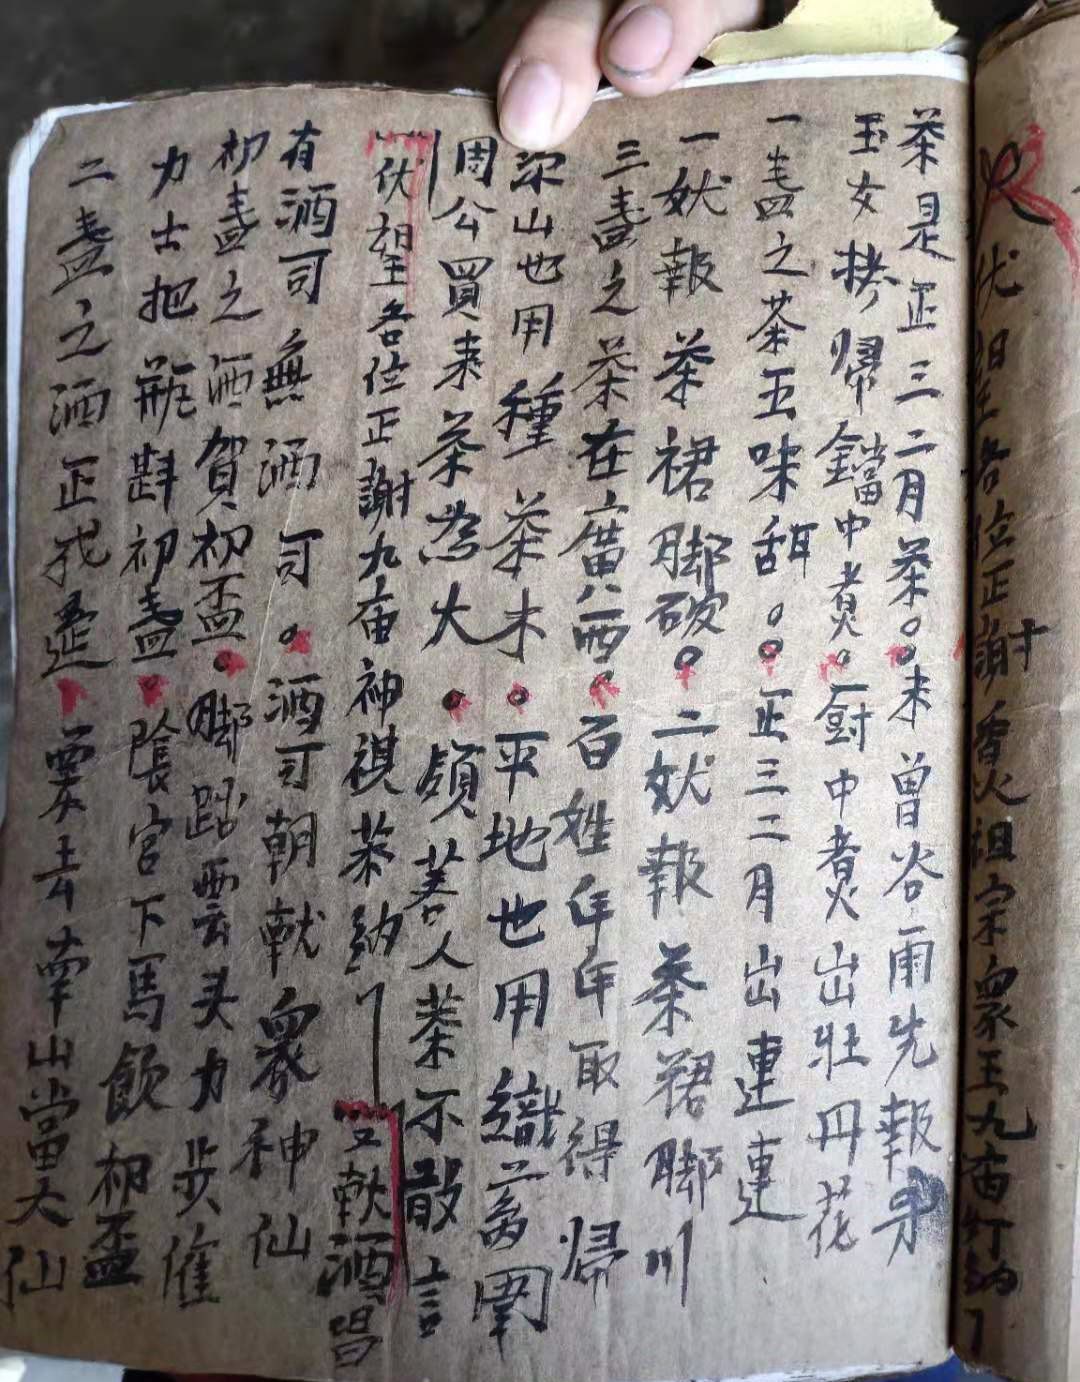 伏望各位正謝香火祖宗眾王九庙灯納了
茶是正三二月茶。未曾谷雨先報牙
玉女捧帰鐺中煮。一廚中煮出壯丹花
一盞之茶五味甜。正三二月出連連
一妖報茶裙脚破。二妖報茶裙脚川
三盞之茶在廣西。百姓年年取得帰
深山也用種茶未。平地也用織萬圍
周公買来茶為大。領善人茶不敢言
伏望各位正謝九庙神祺茶納了 又献酒唱
有酒司無酒司。酒司朝献眾神仙
初盞之酒賀初盃。脚踏雲头力步催
力士把瓶斟初盞。陰宫下馬飲初盃
二盞之酒正戎 要去南山當大仙